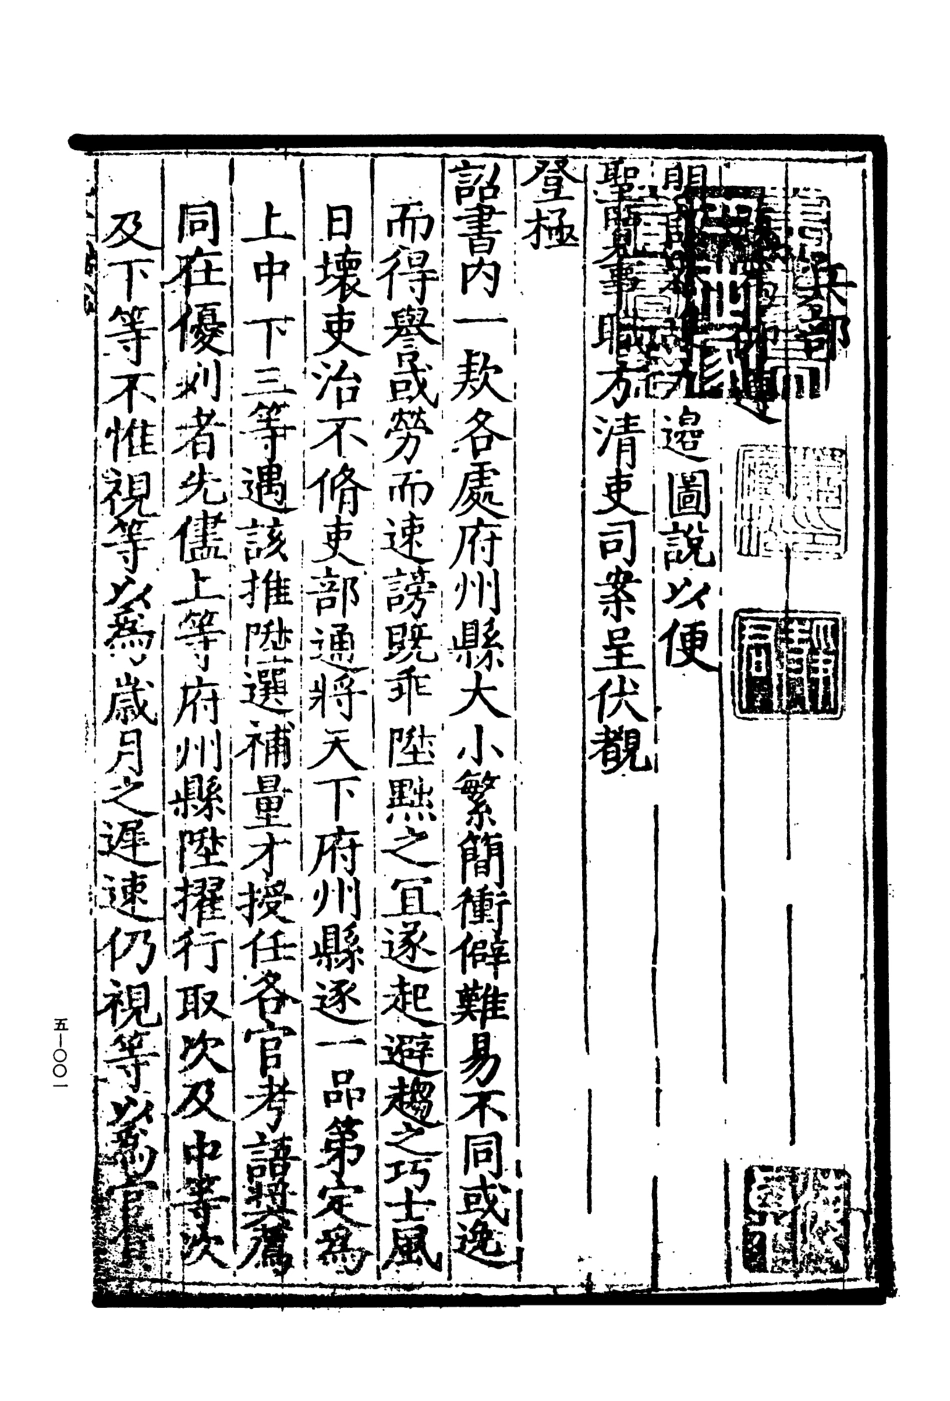 兵部
邊圖說以便
聖覽事職方清吏司案呈伏覩
登極
詔書内一欵各處府州縣大小繁簡衝僻難易不同或逸
而得譽或勞而速謗既乖陞黜之宜遂起避趨之巧士風
日壞吏治不脩吏部通將天下府州縣逐一品第定為
上中下三等遇該推陞選補量才授任各官考語奬薦
同在優列者先儘上等府州縣陞擢行取次及中等次
及下等不惟視等以為歲月之遲速仍視等以為官
五—〇〇一